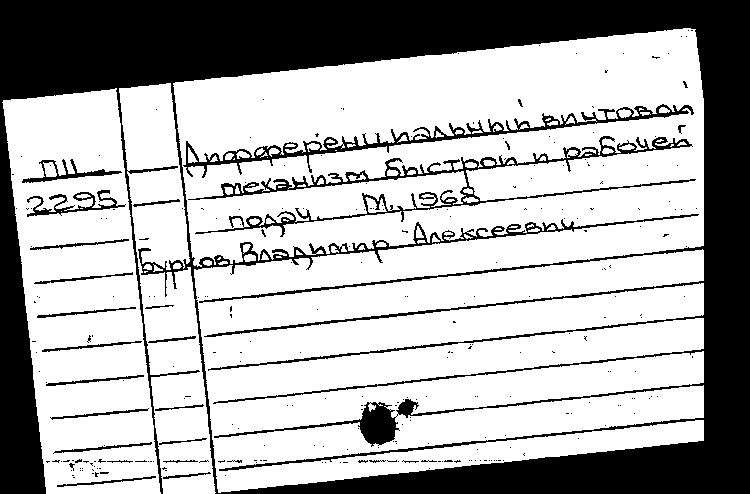 П11
2295
Дифференциальный винтовой
механизм быстрой и рабочей
подач. М., 1968
Бурков, Владимир Алексеевич.